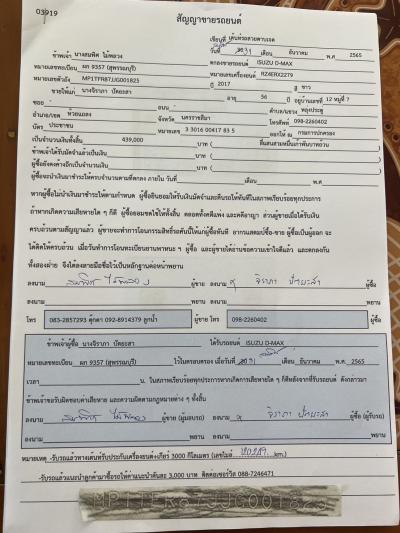 03919
สัญญาขายรถยนต์
เขียนที่ เต็นท์รถสวยตาบอล
วันที่ 31 เดือน ธันวาคม พ.ศ. 2565
ข้าพเจ้า นางสมพิศ ไม้พลวง ตกลงขายรถยนต์ ISUZU D-MAX
หมายเลขทะเบียน ผก 9357 (สุพรรณบุรี) หมายเลขเครื่องยนต์ RZ4ERX2279
หมายเลขตัวถัง MP1TFR87JJG001825 ปี 2017 สี ขาว
ขายให้แก่ นางจิราภา ปัดยะสา อายุ 56 ปี อยู่บ้านเลขที่ 12 หมู่ที่ 7
ซอย - ถนน - ตำบล/แขวง หลุ่งประดู่
อำเภอ/เขต ห้วยแถลง จังหวัด นครราชสีมา โทรศัพท์ 098-2260402
บัตร ประชาชน หมายเลข 3 3016 00417 83 5 ออกให้ ณ กรมการปกครอง
เป็นจำนวนเงินทั้งสิ้น 439,000 บาท ( สี่แสนสามหมื่นเก้าพันบาทถ้วน
ข้าพเจ้าได้รับมัดจำแล้วเป็นเงิน บาท (
ผู้ซื้อยังคงค้างอีกเป็นจำนวนเงิน บาท (
ผู้ซื้อจะนำเงินมาชำระให้ครบจำนวนตามที่ตกลง ภายใน วันที่ เดือน พ.ศ.
หากผู้ซื้อไม่นำเงินมาชำระให้ตามกำหนด ผู้ซื้อยินยอมให้ริบเงินมัดจำและคืนรถให้ทันทีในสภาพเรียบร้อยทุกประการ
ถ้าหากเกิดความเสียหายใด ๆ ก็ดี ผู้ซื้อยอมชดใช้ให้ทั้งสิ้น ตลอดทั้งคดีแพ่ง และคดีอาญา ส่วนผู้ขายเมื่อได้รับเงิน
ครบถ้วนตามสัญญาแล้ว ผู้ขายจะทำการโอนกรรมสิทธิ์รถคันนี้ให้แก่ผู้ซื้อทันที อากรแสตมป์ซื้อ-ขาย ผู้ซื้อเป็นผู้ออก จะ
ได้ติดให้ครบถ้วน เมื่อวันทำการโอนทะเบียนยานพาหนะ ฯ ผู้ซื้อ และผู้ขายได้อ่านข้อความเข้าใจดีแล้ว และตกลงกัน
ทั้งสองฝ่าย จึงได้ลงลายมือชื่อไว้เป็นหลักฐานต่อหน้าพยาน
ลงนาม สมพิศ ไม้พลวง ผู้ขาย ลงนาม จิราภา ปัดยะสา ผู้ซื้อ
ลงนาม พยาน ลงนาม พยาน
โทร 083-2857293 ตุ๊กตา 092-8914379 ลูกน้ำ ผู้ขาย โทร 098-2260402 ผู้ซื้อ
ข้าพเจ้าผู้ซื้อ นางจิราภา ปัดยะสา ได้รับรถยนต์ ISUZU D-MAX
หมายเลขทะเบียน ผก 9357 (สุพรรณบุรี) ไว้ในครอบครอง เมื่อวันที่ 31 เดือน ธันวาคม พ.ศ. 2565
เวลา น. ในสภาพเรียบร้อยทุกประการหากเกิดการเสียหายใด ๆ ก็ดีหลังจากที่รับรถยนต์ ดังกล่าวมา
ข้าพเจ้าขอรับผิดชอบค่าเสียหาย และความผิดตามกฎหมายต่าง ๆ ทั้งสิ้น
ลงนาม สมพิศ ไม้พลวง ผู้ขาย (ผู้มอบรถ) ลงนาม จิราภา ปัดยะสา ผู้ซื้อ (ผู้รับรถ)
ลงนาม พยาน ลงนาม พยาน
หมายเหตุ -รับรถแล้วทางเต็นท์รับประกันเครื่องยนต์+เกียร์ 3000 กิโลเมตร (เลขไมล์ km.)
-รับรถแล้วแนะนำลูกค้ามาซื้อรถให้ค่าแนะนำคันละ 3,000 บาท ติดต่อเซอร์วิส 088-7246471
MP1TFR87JJG001825